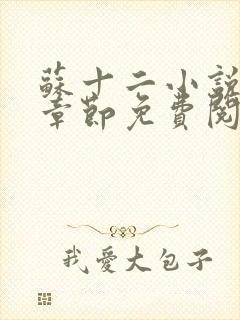 蘇十二小說
章節免費閱
我愛大包子